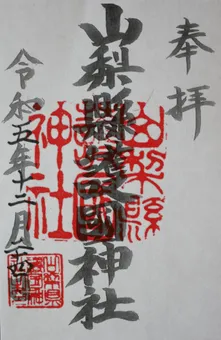 奉拝
山梨縣護國神社
令和五年十二月二十四日
山梨縣
護國
神社